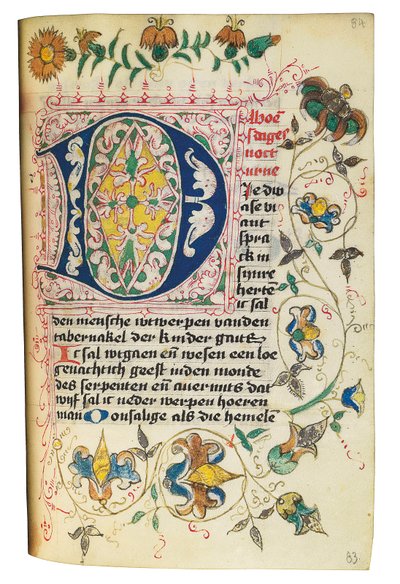 84
sdages
noct
urne
DIe dw
ase vi
ant
spra
ck in
synre
herte
ic sal
den mensche wtwerpen vanden
tabernakel der kinder gaits
Ic sal wtgaen en̄ wesen een loe
genachtich geest inden monde
des serpenten en̄ auermits dat
wijf sal ic neder werpen hoeren
man O onsalige als die hemele
83.